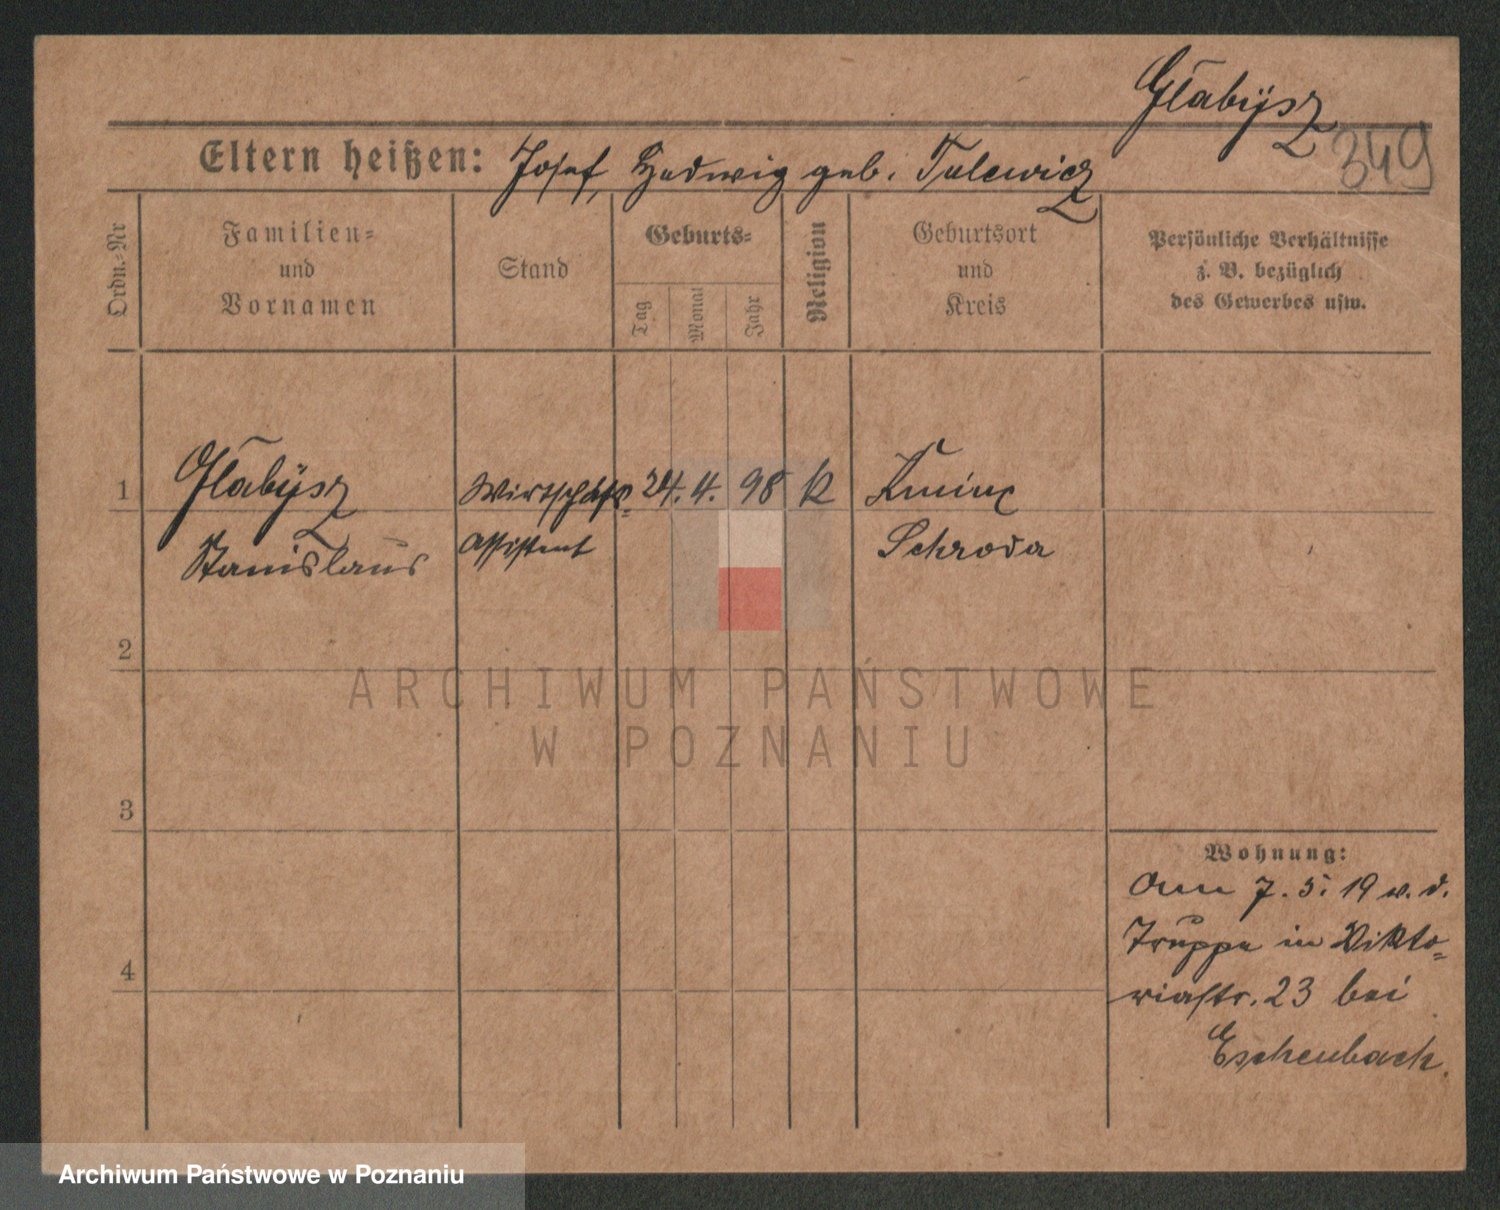 Glabÿsz
349
Eltern heißen: Josef, Hedwig geb. Tulewicz
Ordn.-Nr
Familien-
und
Vornamen
Stand
Geburts-
Tag
Monat
Jahr
Religion
Geburtsort
und
Kreis
Persönliche Verhältnisse
z. B. bezüglich
des Gewerbes usw.
1 Glabÿsz Wirtschafts- 24. 4. 98 K
Stanislaus Assistent Schroda
2
ARCHIWUM PAŃSTWOWE
W POZNANIU
3
Wohnung:
Am 7. 5. 19 v. d.
Truppe in Vikto-
riastr. 23 bei
Eschenbach.
4
Archiwum Państwowe w Poznaniu